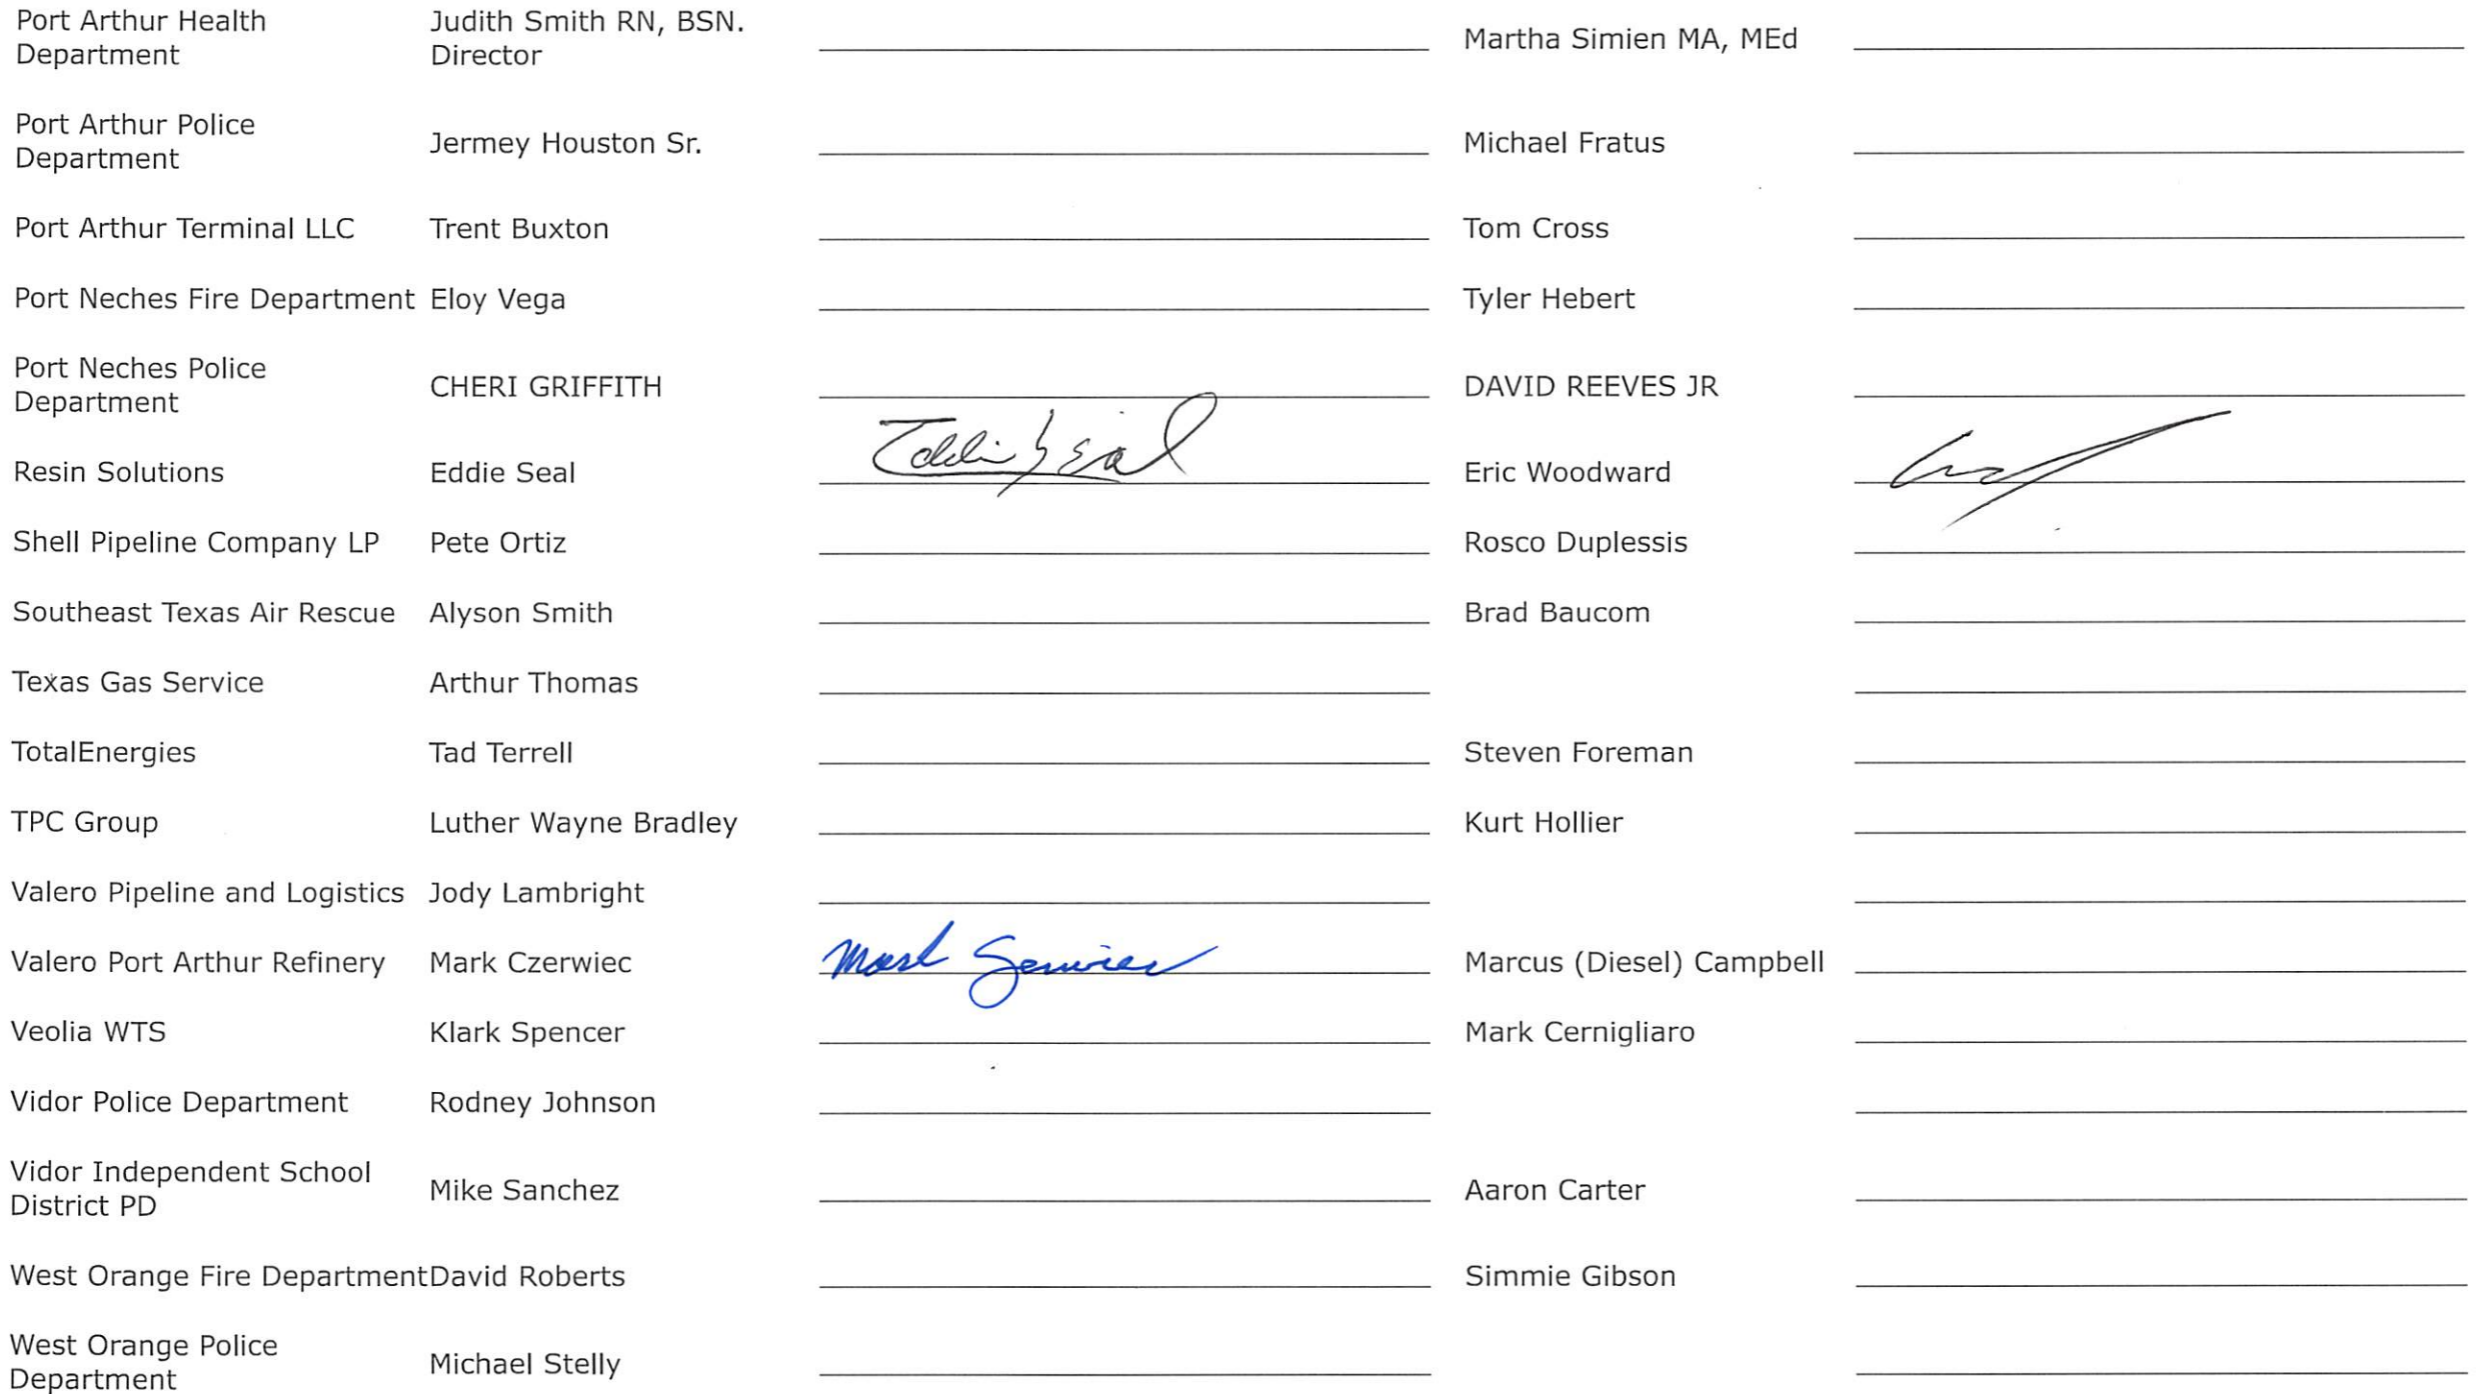 Port Arthur Health Department Judith Smith RN, BSN. Director Martha Simien MA, MEd
Port Arthur Police Department Jermey Houston Sr. Michael Fratus
Port Arthur Terminal LLC Trent Buxton Tom Cross
Port Neches Fire Department Eloy Vega Tyler Hebert
Port Neches Police Department CHERI GRIFFITH DAVID REEVES JR
Resin Solutions Eddie Seal Eddie Seal Eric Woodward
Shell Pipeline Company LP Pete Ortiz Rosco Duplessis
Southeast Texas Air Rescue Alyson Smith Brad Baucom
Texas Gas Service Arthur Thomas
TotalEnergies Tad Terrell Steven Foreman
TPC Group Luther Wayne Bradley Kurt Hollier
Valero Pipeline and Logistics Jody Lambright
Valero Port Arthur Refinery Mark Czerwiec Mark Czerwiec Marcus (Diesel) Campbell
Veolia WTS Klark Spencer Mark Cernigliaro
Vidor Police Department Rodney Johnson
Vidor Independent School District PD Mike Sanchez Aaron Carter
West Orange Fire Department David Roberts Simmie Gibson
West Orange Police Department Michael Stelly